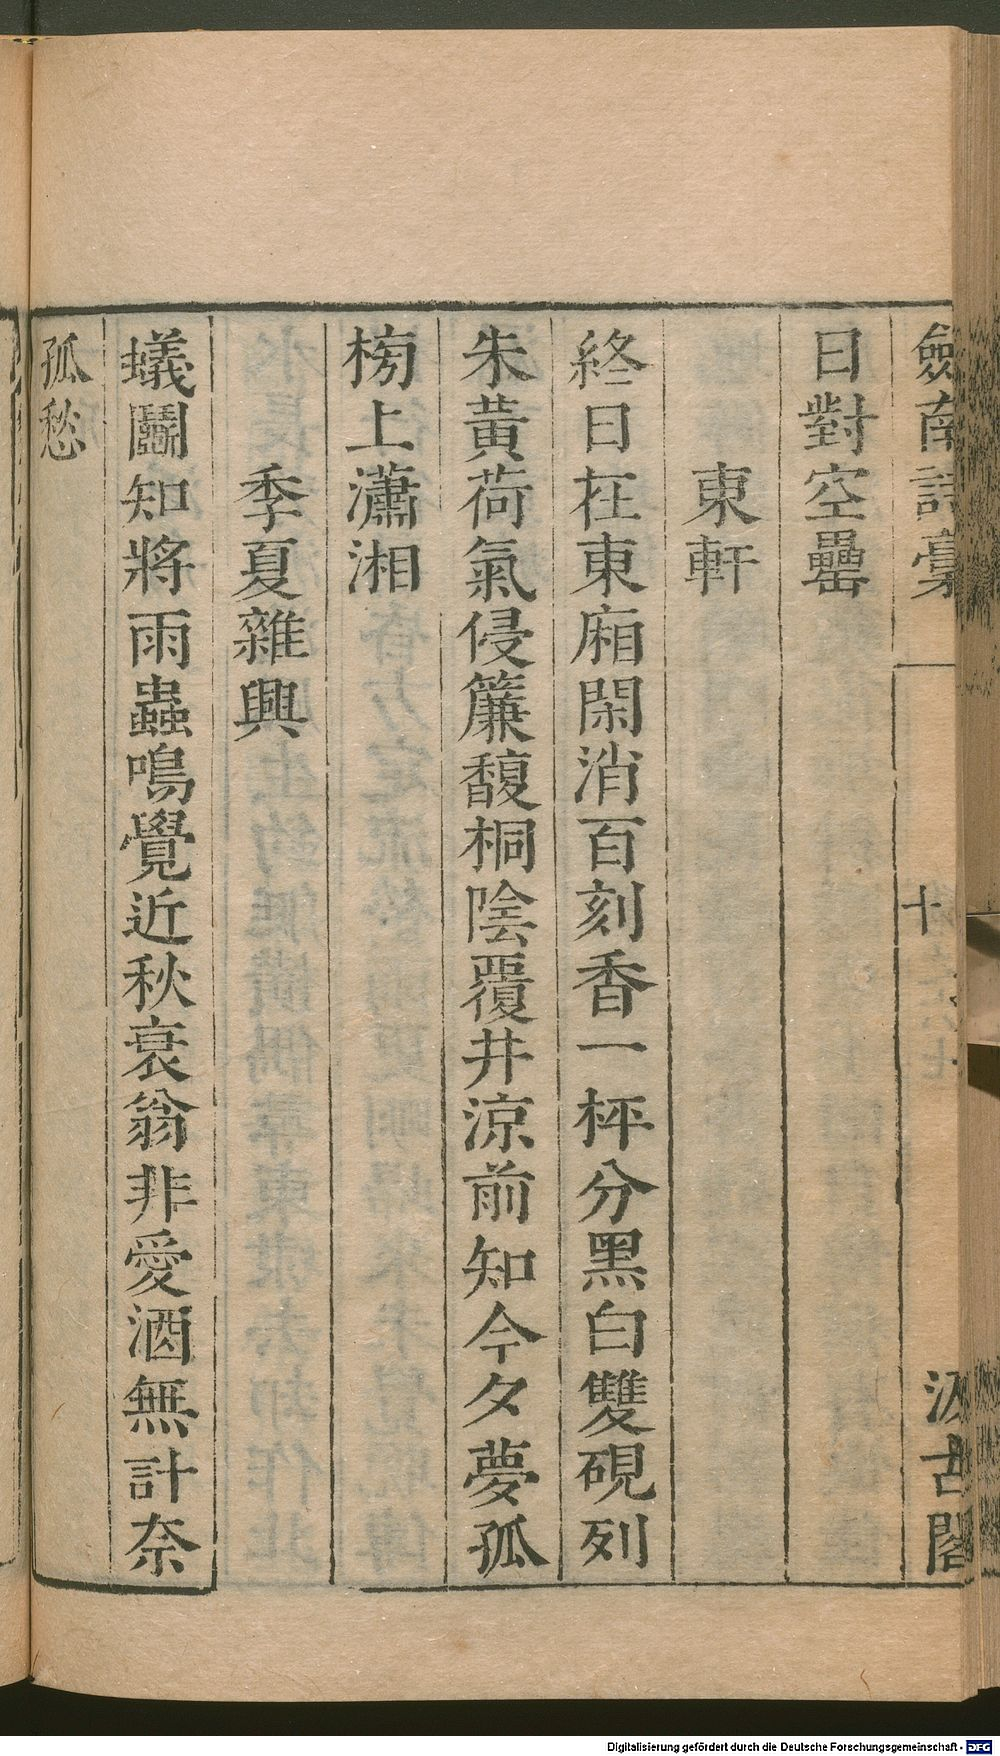 劒南詩稾 十 汲古閣
日對空罍
東軒
終日在東廂閑消百刻香一枰分黑白雙硯列
朱黃荷氣侵簾馥桐陰覆井涼前知今夕夢孤
榜上瀟湘
季夏雜興
蟻鬭知將雨蟲鳴覺近秋衰翁非愛酒無計奈
孤愁
Digitalisierung gefördert durch die Deutsche Forschungsgemeinschaft - DFG